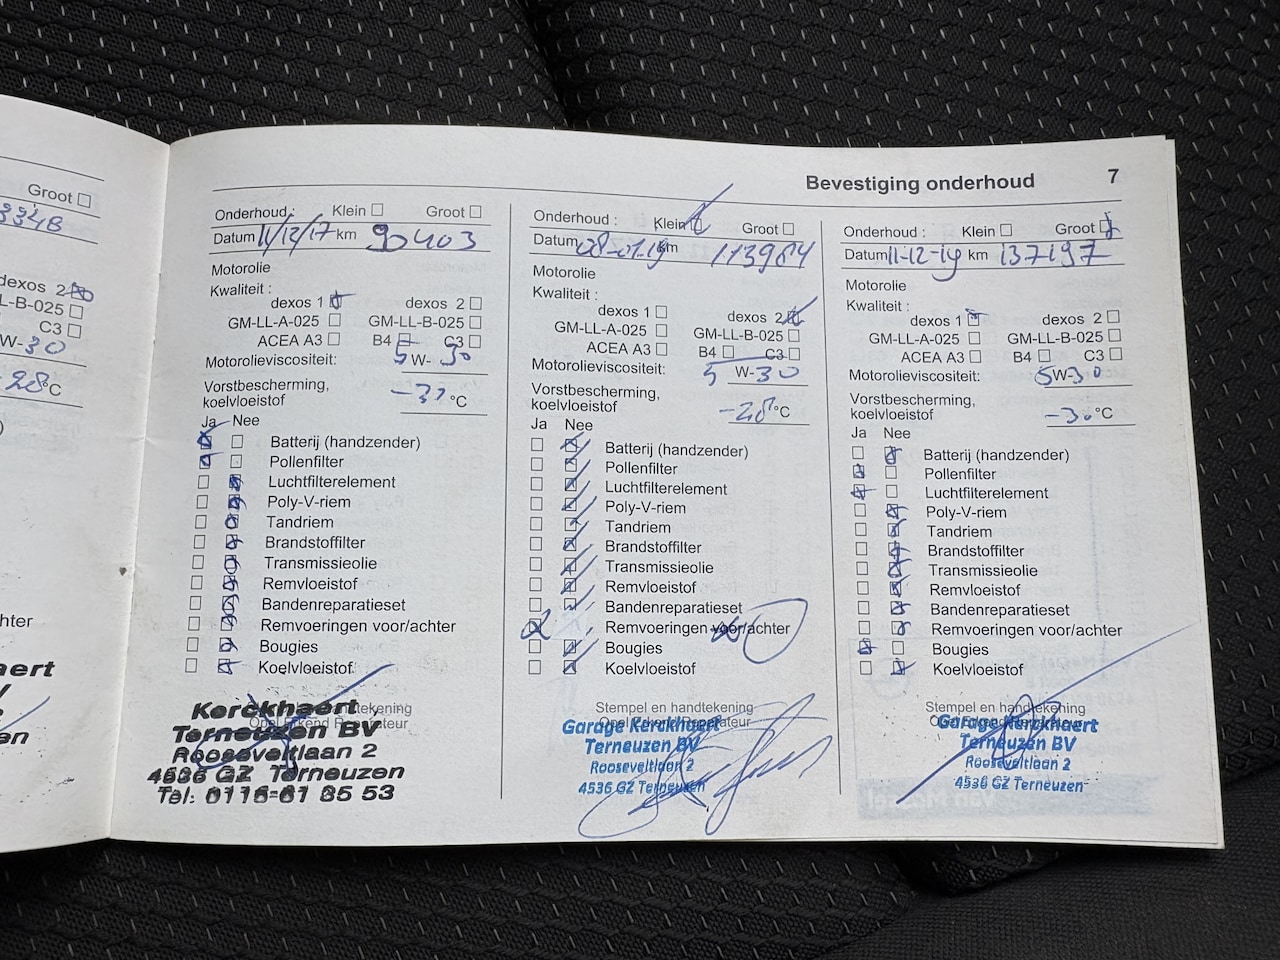 Groot
dexos 2
L-B-025
C3
W-30
-28°C
hter
Bevestiging onderhoud 7
Onderhoud : Klein Groot
Datum 11/12/17 km 90403
Motorolie
Kwaliteit :
dexos 1 dexos 2
GM-LL-A-025 GM-LL-B-025
ACEA A3 B4 C3
Motorolieviscositeit: 5 W- 30
Vorstbescherming,
koelvloeistof °C
Ja Nee
Batterij (handzender)
Pollenfilter
Luchtfilterelement
Poly-V-riem
Tandriem
Brandstoffilter
Transmissieolie
Remvloeistof
Bandenreparatieset
Remvoeringen voor/achter
Bougies
Koelvloeistof
Kerckhaert
Terneuzen BV
Rooseveltlaan 2
4536 GZ Terneuzen
Tel: 0115-61 85 53
Onderhoud : Klein Groot
Datum 08-01-19 km 113984
Motorolie
Kwaliteit :
dexos 1 dexos 2
GM-LL-A-025 GM-LL-B-025
ACEA A3 B4 C3
Motorolieviscositeit: 5 W-30
Vorstbescherming,
koelvloeistof -28°C
Ja Nee
Batterij (handzender)
Pollenfilter
Luchtfilterelement
Poly-V-riem
Tandriem
Brandstoffilter
Transmissieolie
Remvloeistof
Bandenreparatieset
Remvoeringen voor/achter
Bougies
Koelvloeistof
Stempel en handtekening
Opel Erkend Reparateur
Garage Kerckhaert
Terneuzen BV
Rooseveltlaan 2
4536 GZ Terneuzen
Onderhoud : Klein Groot
Datum 11-12-19 km 137197
Motorolie
Kwaliteit :
dexos 1 dexos 2
GM-LL-A-025 GM-LL-B-025
ACEA A3 B4 C3
Motorolieviscositeit: 5W-30
Vorstbescherming,
koelvloeistof -30°C
Ja Nee
Batterij (handzender)
Pollenfilter
Luchtfilterelement
Poly-V-riem
Tandriem
Brandstoffilter
Transmissieolie
Remvloeistof
Bandenreparatieset
Remvoeringen voor/achter
Bougies
Koelvloeistof
Stempel en handtekening
Garage Kerckhaert
Terneuzen BV
Rooseveltlaan 2
4536 GZ Terneuzen